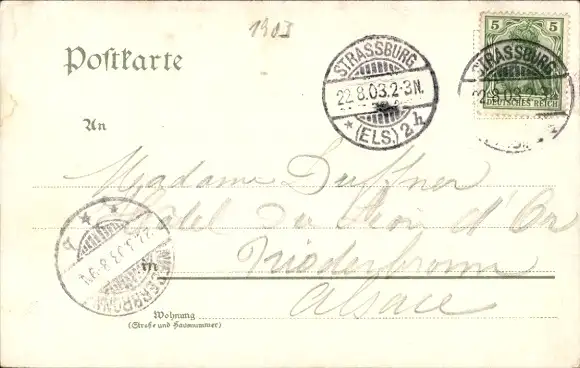 1903
Postkarte
5 5
DEUTSCHES REICH
STRASSBURG
22.8.03.2-3N.
* (ELS) 2h
STRASSBURG
22.8.03.2-3N.
An
Madame Duffner
Hotel du Lion d'Or
in
Niederbronn
Alsace
NIEDERBRONN
22.8.03
Wohnung
(Straße und Hausnummer)